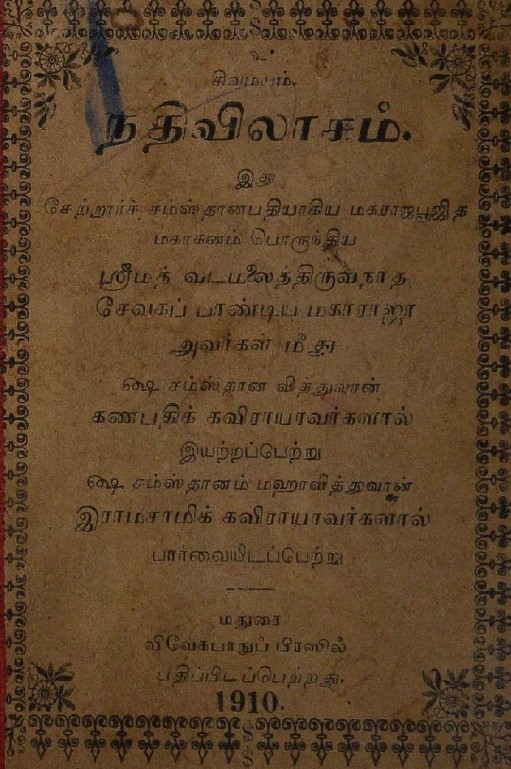 உ
சிவமயம்.
நதிவிலாசம்.
இது
சேற்றூர்ச் சமஸ்தானபதியாகிய மகராஜபூஜித
மகாகனம் பொருந்திய
ஸ்ரீமத் வடமலைத்திருவநாத
சேவகப் பாண்டிய மகாராஜா
அவர்கள் மீது
௸ சமஸ்தான வித்துவான்
கணபதிக் கவிராயரவர்களால்
இயற்றப்பெற்று
௸ சமஸ்தானம் மஹாவித்துவான்
இராமசாமிக் கவிராயரவர்களால்
பார்வையிடப்பெற்று
மதுரை
விவேகபாநுப் பிரஸில்
பதிப்பிடப்பெற்றது.
1910.